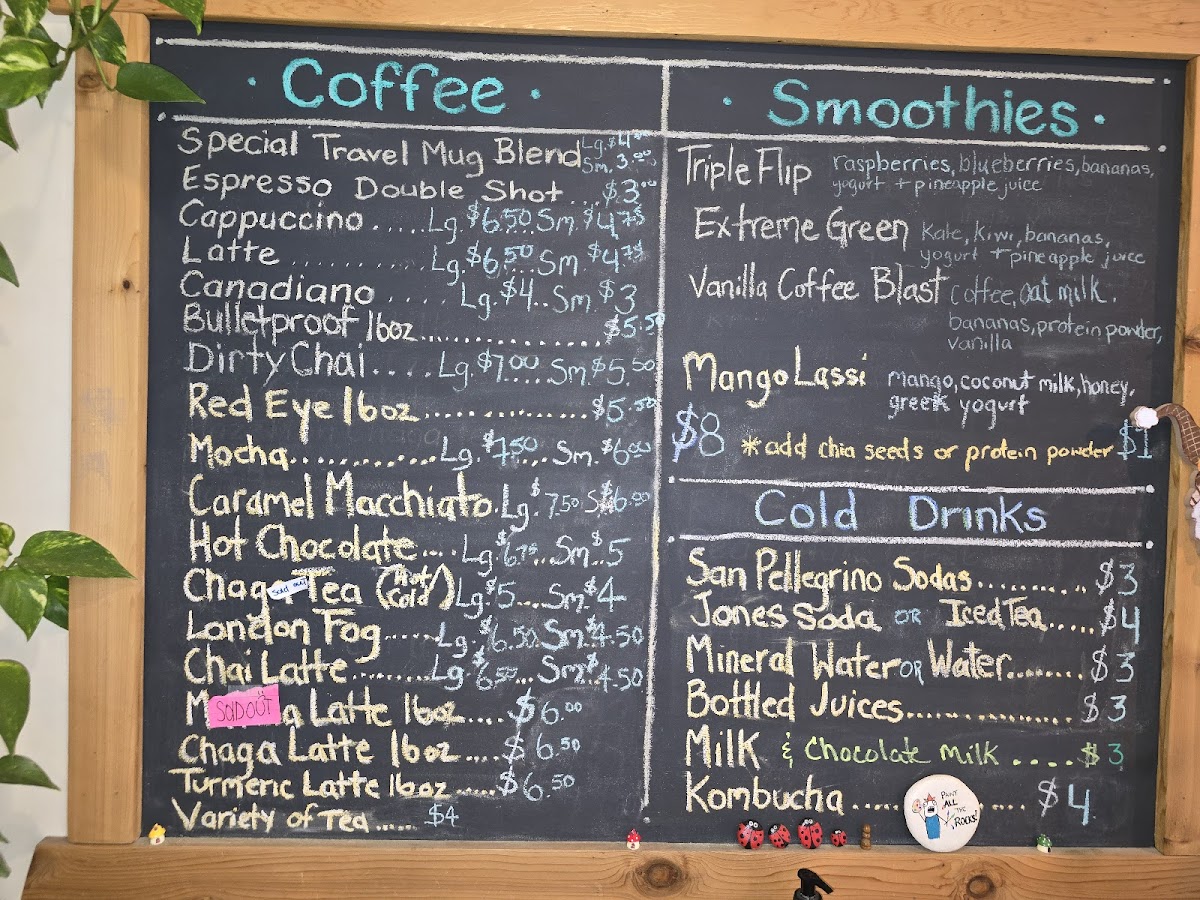 · Coffee ·
Special Travel Mug Blend Lg. $4.00
Sm. 3.00
Espresso Double Shot... $3.00
Cappuccino..... Lg. $6.50 Sm. $4.75
Latte.......... Lg. $6.50 Sm $4.75
Canadiano...... Lg. $4.. Sm. $3
Bulletproof 16oz................ $5.50
Dirty Chai.... Lg. $7.00.... Sm. $5.50
Red Eye 16oz............... $5.50
Mocha............ Lg. $7.50.... Sm. $6.00
Caramel Macchiato. Lg. $7.50 Sm $6.00
Hot Chocolate.... Lg. $6.75.. Sm. $5
Chaga Tea (Hot/Cold) Lg. $5.... Sm. $4
Sold out
London Fog...... Lg. $6.50. Sm. $4.50
Chai Latte........ Lg. $6.50... Sm. $4.50
M SOLD OUT a Latte 16oz.... $6.00
Chaga Latte 16oz.... $6.50
Turmeric Latte 16oz..... $6.50
Variety of Tea...... $4
· Smoothies ·
Triple Flip raspberries, blueberries, bananas,
yogurt + pineapple juice
Extreme Green Kale, kiwi, bananas,
yogurt + pineapple juice
Vanilla Coffee Blast coffee, oat milk.
bananas, protein powder,
vanilla
Mango Lassi mango, coconut milk, honey,
greek yogurt
$8 *add chia seeds or protein powder $1
Cold Drinks
San Pellegrino Sodas........... $3
Jones Soda OR Iced Tea..... $4
Mineral Water OR Water........ $3
Bottled Juices................. $3
Milk & Chocolate milk.....$3
Kombucha............ $4
PAINT
ALL
THE
ROCKS!